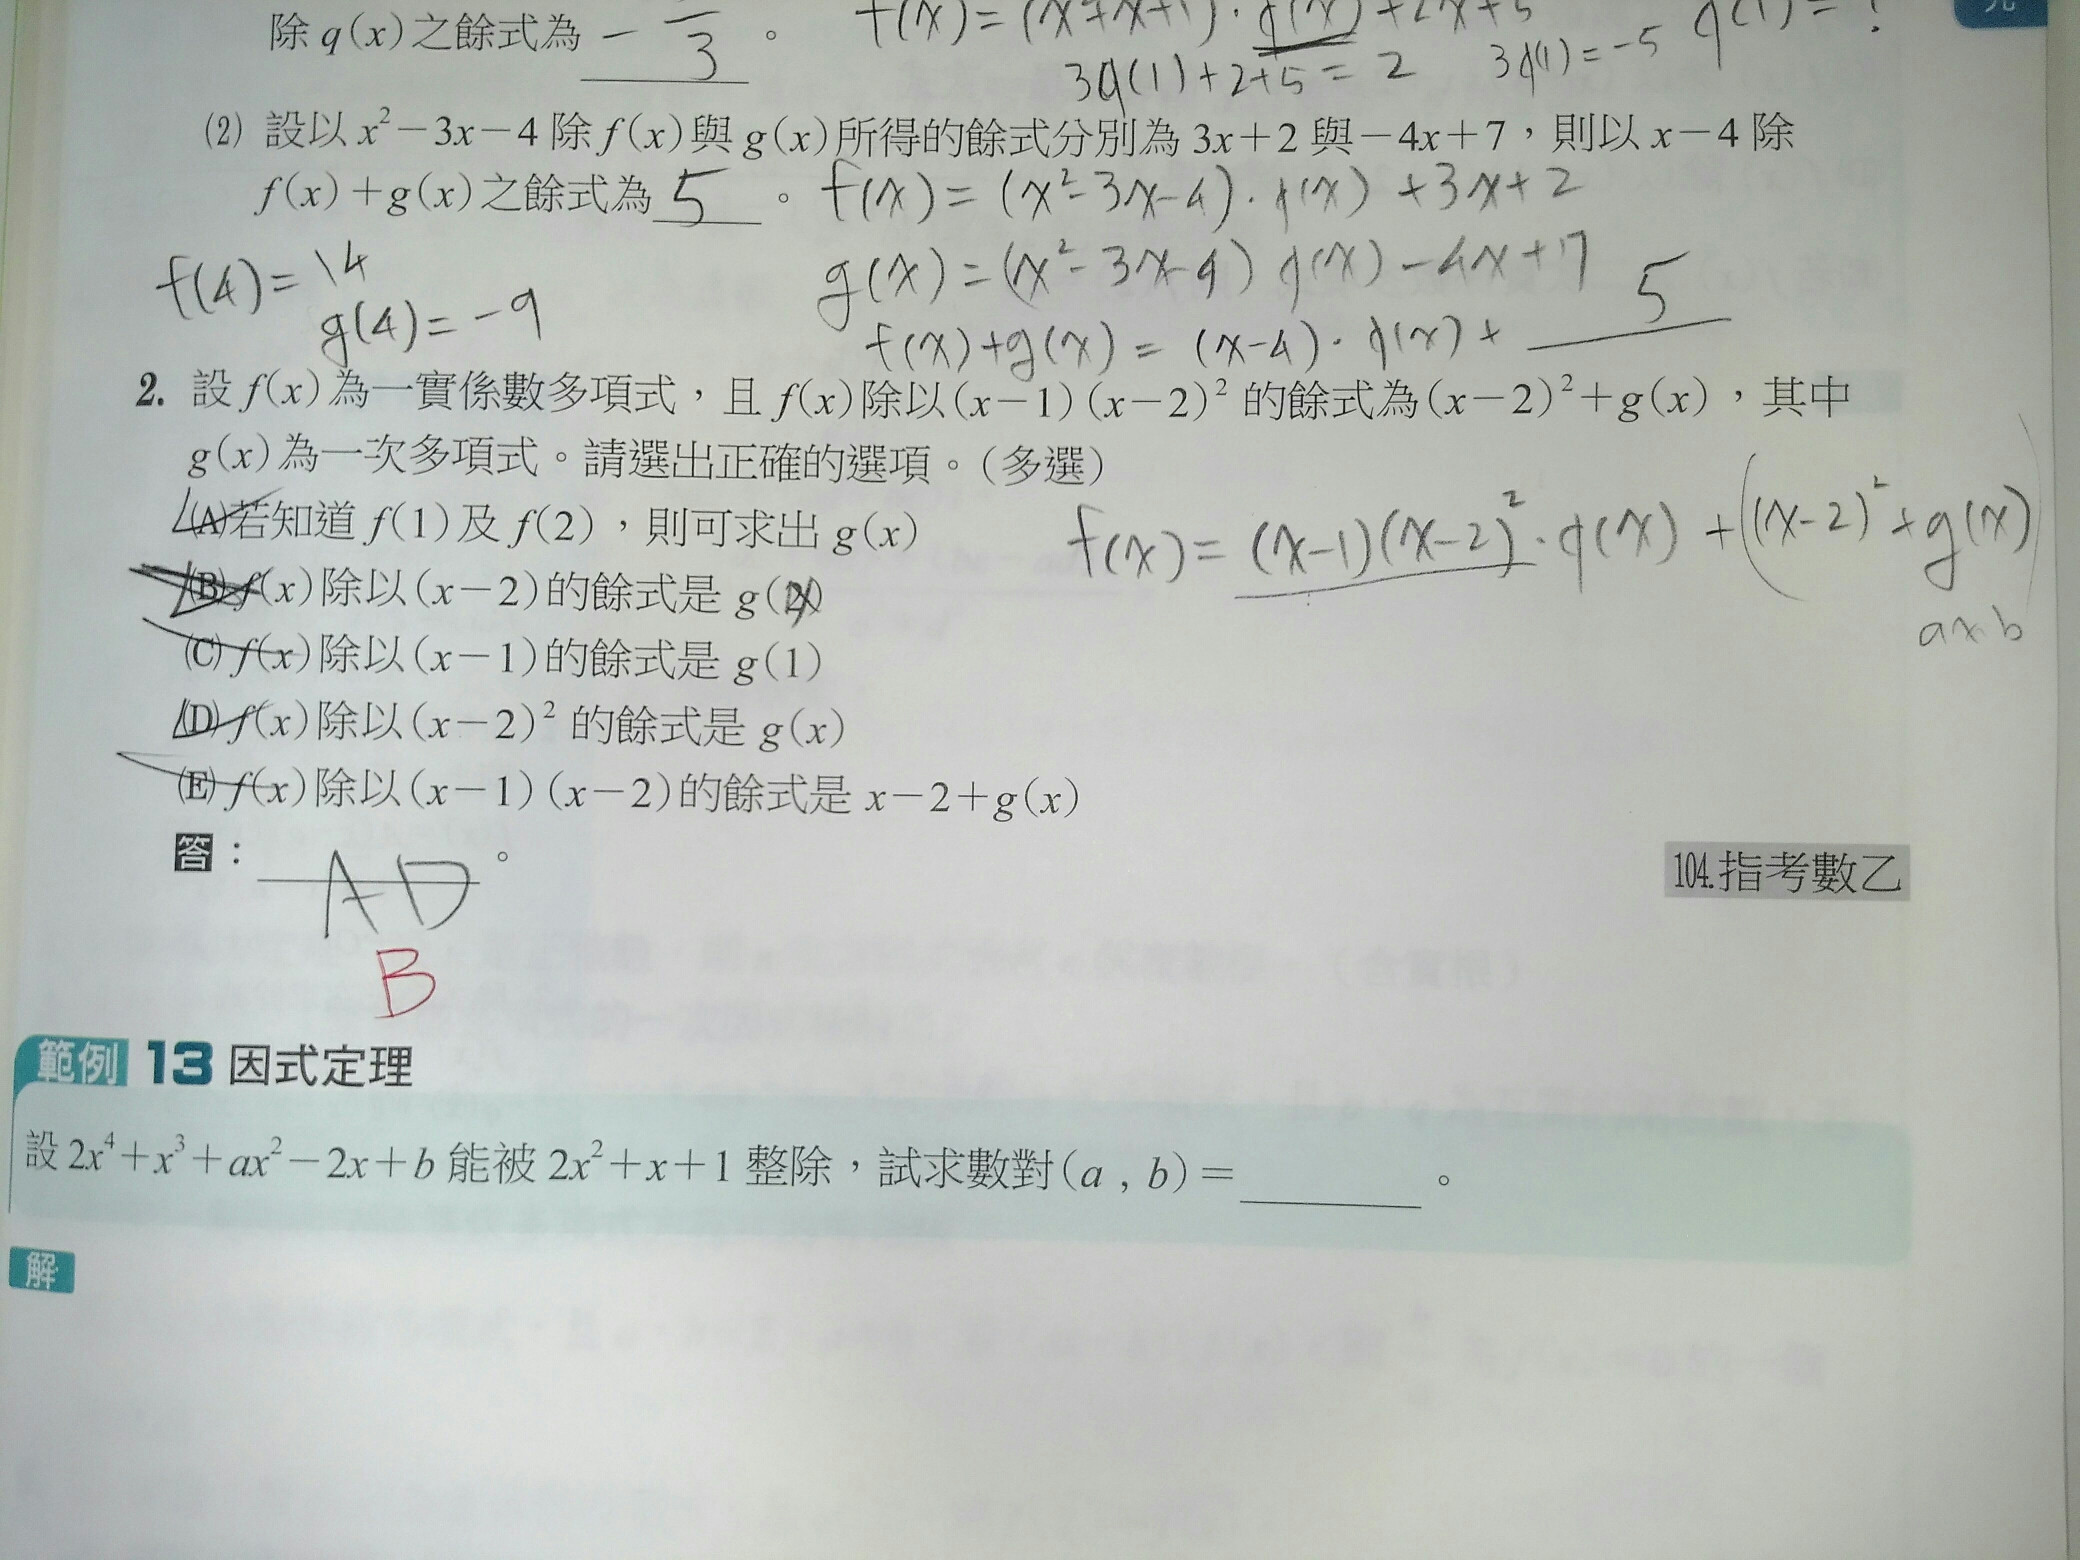 除 q(x) 之餘式為 - 3 。 f(x)=(x²+x+1)·q(x)+2x+5 q(1)=?
3q(1)+2+5=2 3q(1)=-5
(2) 設以 x²-3x-4 除 f(x) 與 g(x) 所得的餘式分別為 3x+2 與 -4x+7,則以 x-4 除
f(x)+g(x) 之餘式為 5 。 f(x)=(x²-3x-4)·q(x)+3x+2
f(4)=14 g(x)=(x²-3x-4) q(x)-4x+7
g(4)=-9 f(x)+g(x)=(x-4)·q(x)+ 5
2. 設 f(x) 為一實係數多項式,且 f(x) 除以 (x-1)(x-2)² 的餘式為 (x-2)²+g(x),其中
g(x) 為一次多項式。請選出正確的選項。(多選)
(A) 若知道 f(1) 及 f(2),則可求出 g(x) f(x)=(x-1)(x-2)²·q(x)+((x-2)²+g(x))
(B) f(x) 除以 (x-2) 的餘式是 g(2) ax+b
(C) f(x) 除以 (x-1) 的餘式是 g(1)
(D) f(x) 除以 (x-2)² 的餘式是 g(x)
(E) f(x) 除以 (x-1)(x-2) 的餘式是 x-2+g(x)
答: AD 。 104.指考數乙
B
範例 13 因式定理
設 2x⁴+x³+ax²-2x+b 能被 2x²+x+1 整除,試求數對 (a , b)= 。
解